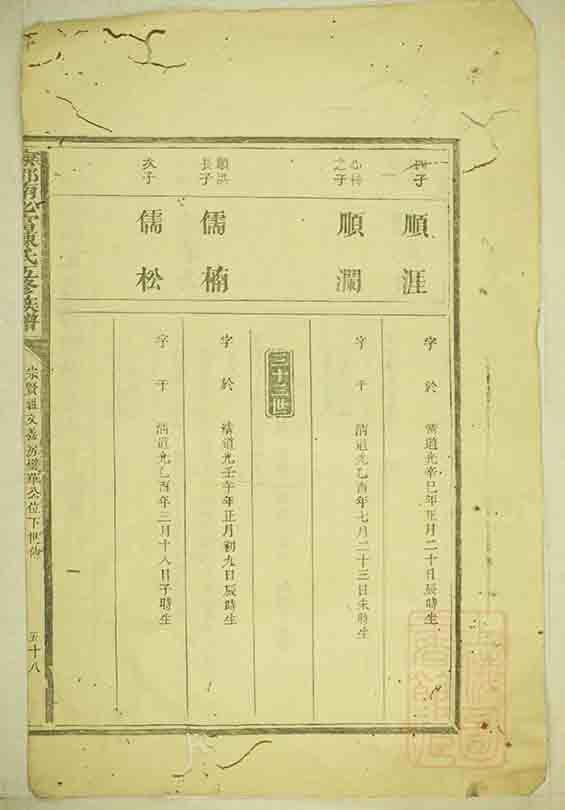 次子
順涯
字 於 清道光辛巳年正月二十日辰時生
之子
順瀾
字 于 清道光乙酉年七月二十三日未時生
三十三世
順洪
長子
儒楠
字 於 清道光壬午年正月初九日辰時生
次子
儒松
字 于 清道光乙酉年三月十八日子時生
陳氏五修族譜
崇賢祖文嘉房 公位下世傳
五十八